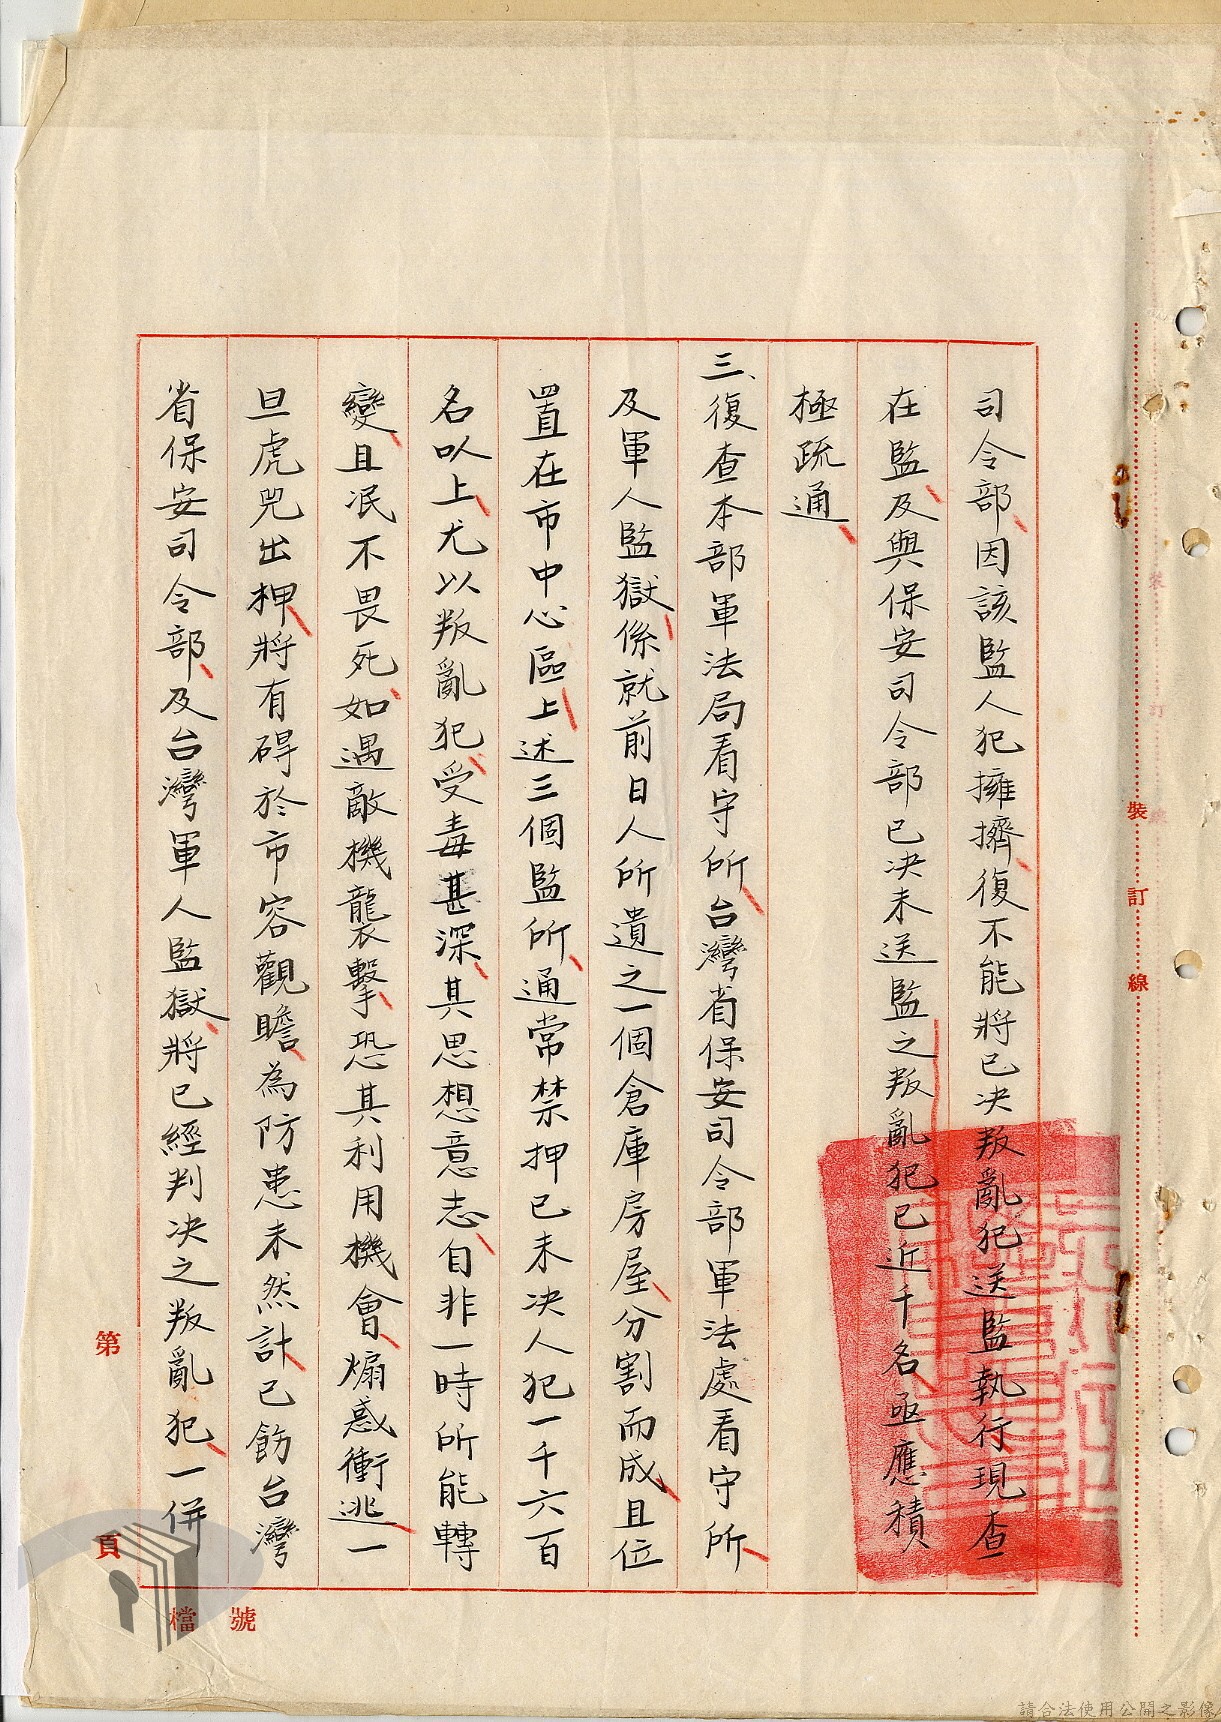 司令部、因該監人犯擁擠、復不能將已決叛亂犯送監執行現查
在監、及與保安司令部已决未送監之叛亂犯已近千名、亟應積
極疏通、
三、復查本部軍法局看守所、台灣省保安司令部軍法處看守所、
及軍人監獄、係就前日人所遺之一個倉庫房屋、分割而成、且位
置在市中心區、上述三個監所、通常禁押已未决人犯一千六百
名以上、尤以叛亂犯、受毒甚深、其思想意志、自非一時所能轉
變、且泯不畏死、如遇敵機襲擊、恐其利用機會、煽惑衝逃、一
旦虎兕出柙、將有碍於市容觀瞻、為防患未然計、已飭台灣
省保安司令部、及台灣軍人監獄、將已經判决之叛亂犯、一併
裝訂線
第 頁
檔號
請合法使用公開之影像